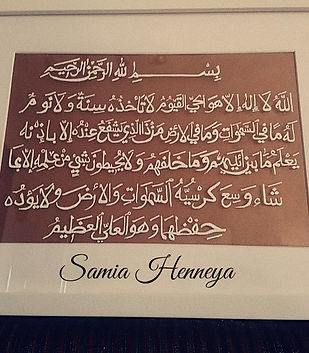 بِسْمِ اللهِ الرَّحْمٰنِ الرَّحِيمِ
اللهُ لَا إِلٰهَ إِلَّا هُوَ الْحَيُّ الْقَيُّومُ لَا تَأْخُذُهُ سِنَةٌ وَلَا نَوْمٌ
لَهُ مَا فِي السَّمٰوَاتِ وَمَا فِي الْأَرْضِ مَنْ ذَا الَّذِي يَشْفَعُ عِنْدَهُ إِلَّا بِإِذْنِهِ
يَعْلَمُ مَا بَيْنَ أَيْدِيهِمْ وَمَا خَلْفَهُمْ وَلَا يُحِيطُونَ بِشَيْءٍ مِنْ عِلْمِهِ إِلَّا بِمَا
شَاءَ وَسِعَ كُرْسِيُّهُ السَّمٰوَاتِ وَالْأَرْضَ وَلَا يَؤُدُهُ
حِفْظُهُمَا وَهُوَ الْعَلِيُّ الْعَظِيمُ
Samia Henneya